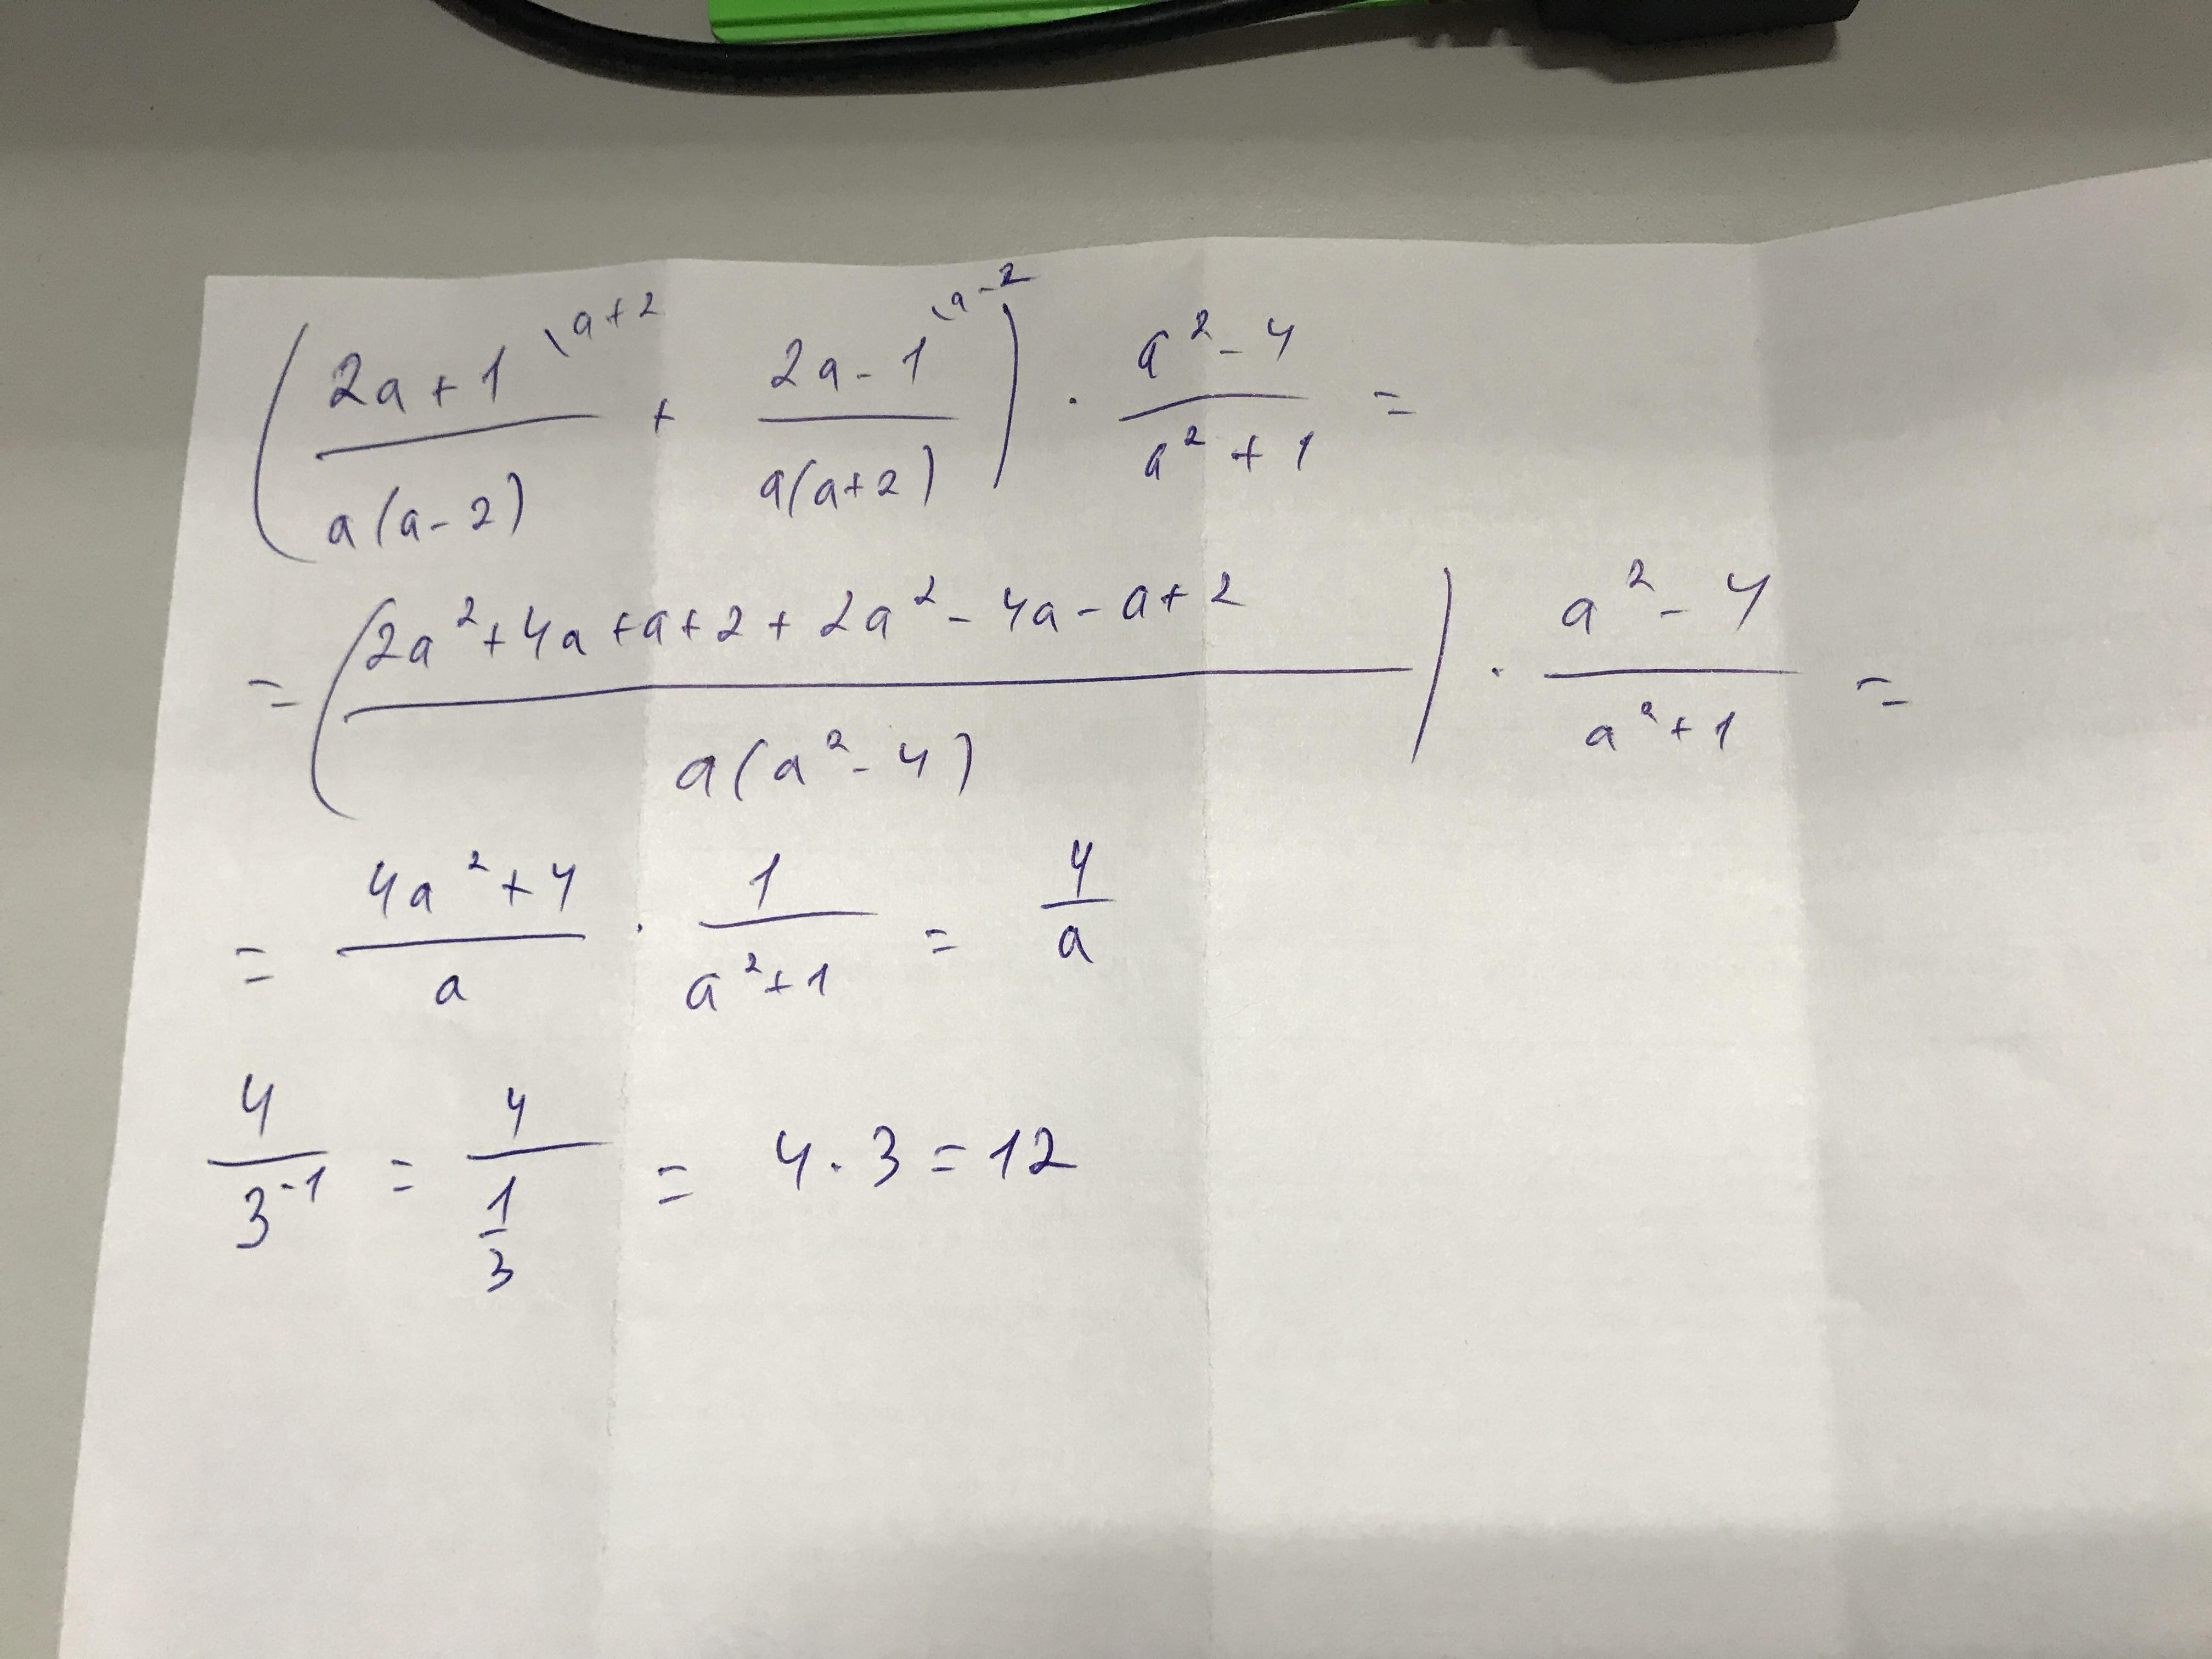 ( (2a+1)/(a(a-2)) \a+2 + (2a-1)/(a(a+2)) \a-2 ) · (a²-4)/(a²+1) =
= ( (2a²+4a+a+2+2a²-4a-a+2)/(a(a²-4)) ) · (a²-4)/(a²+1) =
= (4a²+4)/a · 1/(a²+1) = 4/a
4/3⁻¹ = 4/(1/3) = 4·3=12